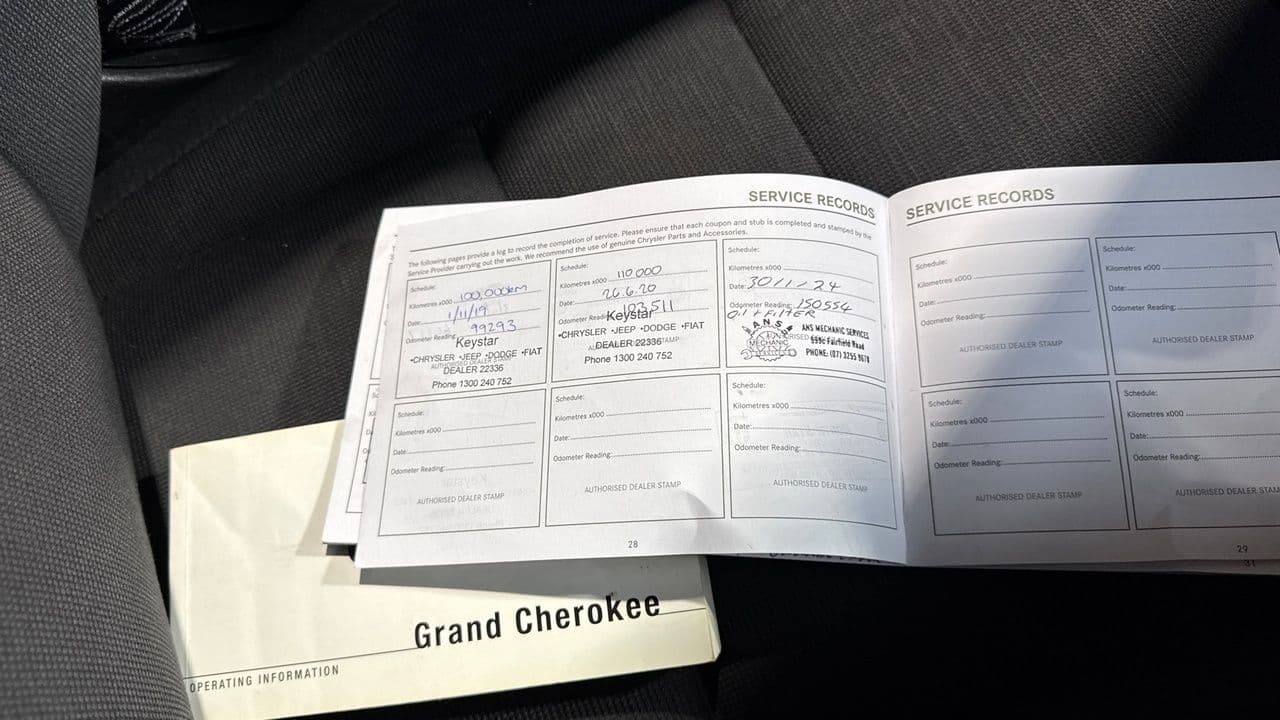 SERVICE RECORDS
The following pages provide a log to record the completion of service. Please ensure that each coupon and stub is completed and stamped by the
Service Provider carrying out the work. We recommend the use of genuine Chrysler Parts and Accessories.
Schedule:
Kilometres x000 100,000km
Date: 1/11/19
Odometer Reading: 99293
Keystar
•CHRYSLER •JEEP •DODGE •FIAT
AUTHORISED DEALER STAMP
DEALER 22336
Phone 1300 240 752
Schedule:
Kilometres x000 110 000
Date: 26.6.20
Odometer Reading: 103511
Keystar
•CHRYSLER •JEEP •DODGE •FIAT
DEALER 22336
Phone 1300 240 752
Schedule:
Kilometres x000
Date: 30/1/24
Odometer Reading: 150554
Oil + Filter
ANS
MECHANIC
SERVICES
ANS MECHANIC SERVICES
Fairfield Road
PHONE: (07) 3255 9678
Schedule:
Kilometres x000
Date:
Odometer Reading:
AUTHORISED DEALER STAMP
Schedule:
Kilometres x000
Date:
Odometer Reading:
AUTHORISED DEALER STAMP
Schedule:
Kilometres x000
Date:
Odometer Reading:
AUTHORISED DEALER STAMP
28
SERVICE RECORDS
Schedule:
Kilometres x000
Date:
Odometer Reading:
AUTHORISED DEALER STAMP
Schedule:
Kilometres x000
Date:
Odometer Reading:
AUTHORISED DEALER STAMP
Schedule:
Kilometres x000
Date:
Odometer Reading:
AUTHORISED DEALER STAMP
Schedule:
Kilometres x000
Date:
Odometer Reading:
AUTHORISED DEALER STAM
29
31
Grand Cherokee
OPERATING INFORMATION